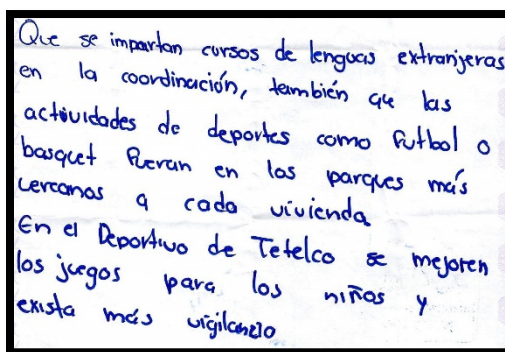 Que se impartan cursos de lenguas extranjeras
en la coordinación, también que las
actividades de deportes como futbol o
basquet fueran en los parques más
cercanos a cada vivienda
En el Deportivo de Tetelco se mejoren
los juegos para los niños y
exista más vigilancia